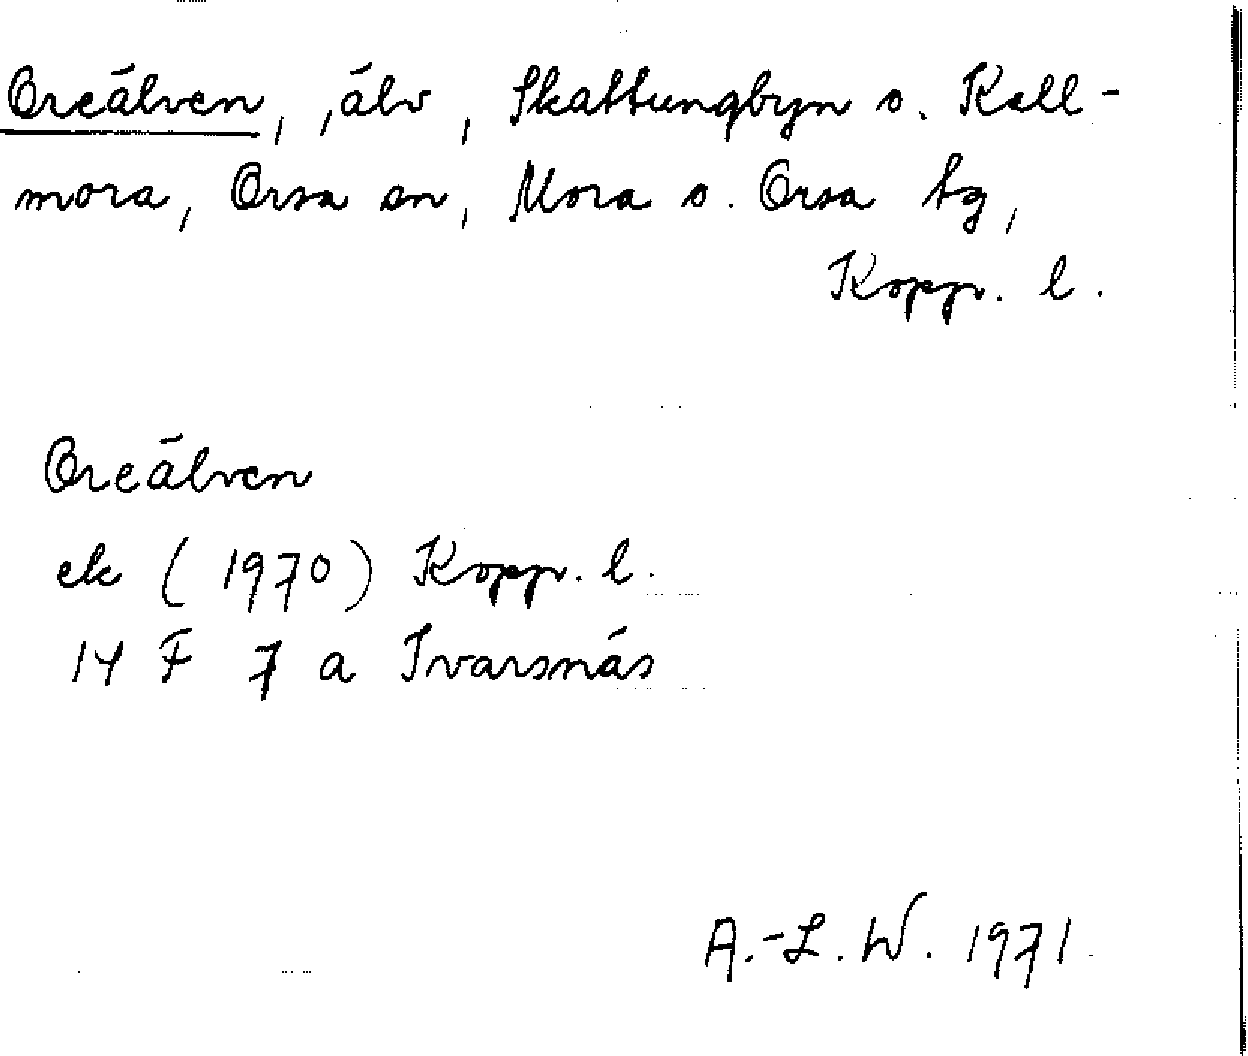 Oreälven, ,älv, Skattungbyn o. Kall-
mora, Orsa sn, Mora o. Orsa tg,
Kopp. l.
Oreälven
ek (1970) Kopp. l.
14 F 7 a Ivarsnäs
A.-L. W. 1971.